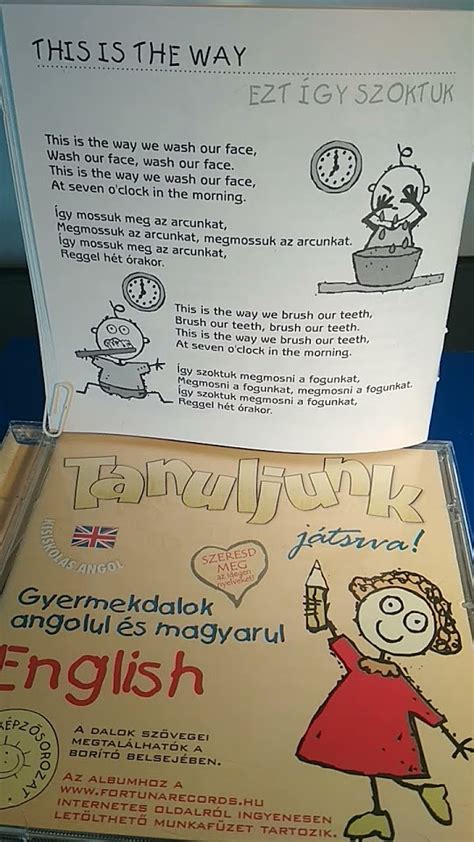 THIS IS THE WAY
EZT ÍGY SZOKTUK
This is the way we wash our face,
Wash our face, wash our face.
This is the way we wash our face,
At seven o'clock in the morning.
Így mossuk meg az arcunkat,
Megmossuk az arcunkat, megmossuk az arcunkat.
Így mossuk meg az arcunkat,
Reggel hét órakor.
This is the way we brush our teeth,
Brush our teeth, brush our teeth.
This is the way we brush our teeth,
At seven o'clock in the morning.
Így szoktuk megmosni a fogunkat,
Megmosni a fogunkat, megmosni a fogunkat.
Így szoktuk megmosni a fogunkat,
Reggel hét órakor.
Tanuljunk
játszva!
KISISKOLÁS ANGOL
SZERESD
MEG
az idegen
nyelveket!
Gyermekdalok
angolul és magyarul
English
KÉPZŐSOROZAT
A DALOK SZÖVEGEI
MEGTALÁLHATÓK A
BORÍTÓ BELSEJÉBEN.
AZ ALBUMHOZ A
WWW.FORTUNARECORDS.HU
INTERNETES OLDALRÓL INGYENESEN
LETÖLTHETŐ MUNKAFÜZET TARTOZIK.